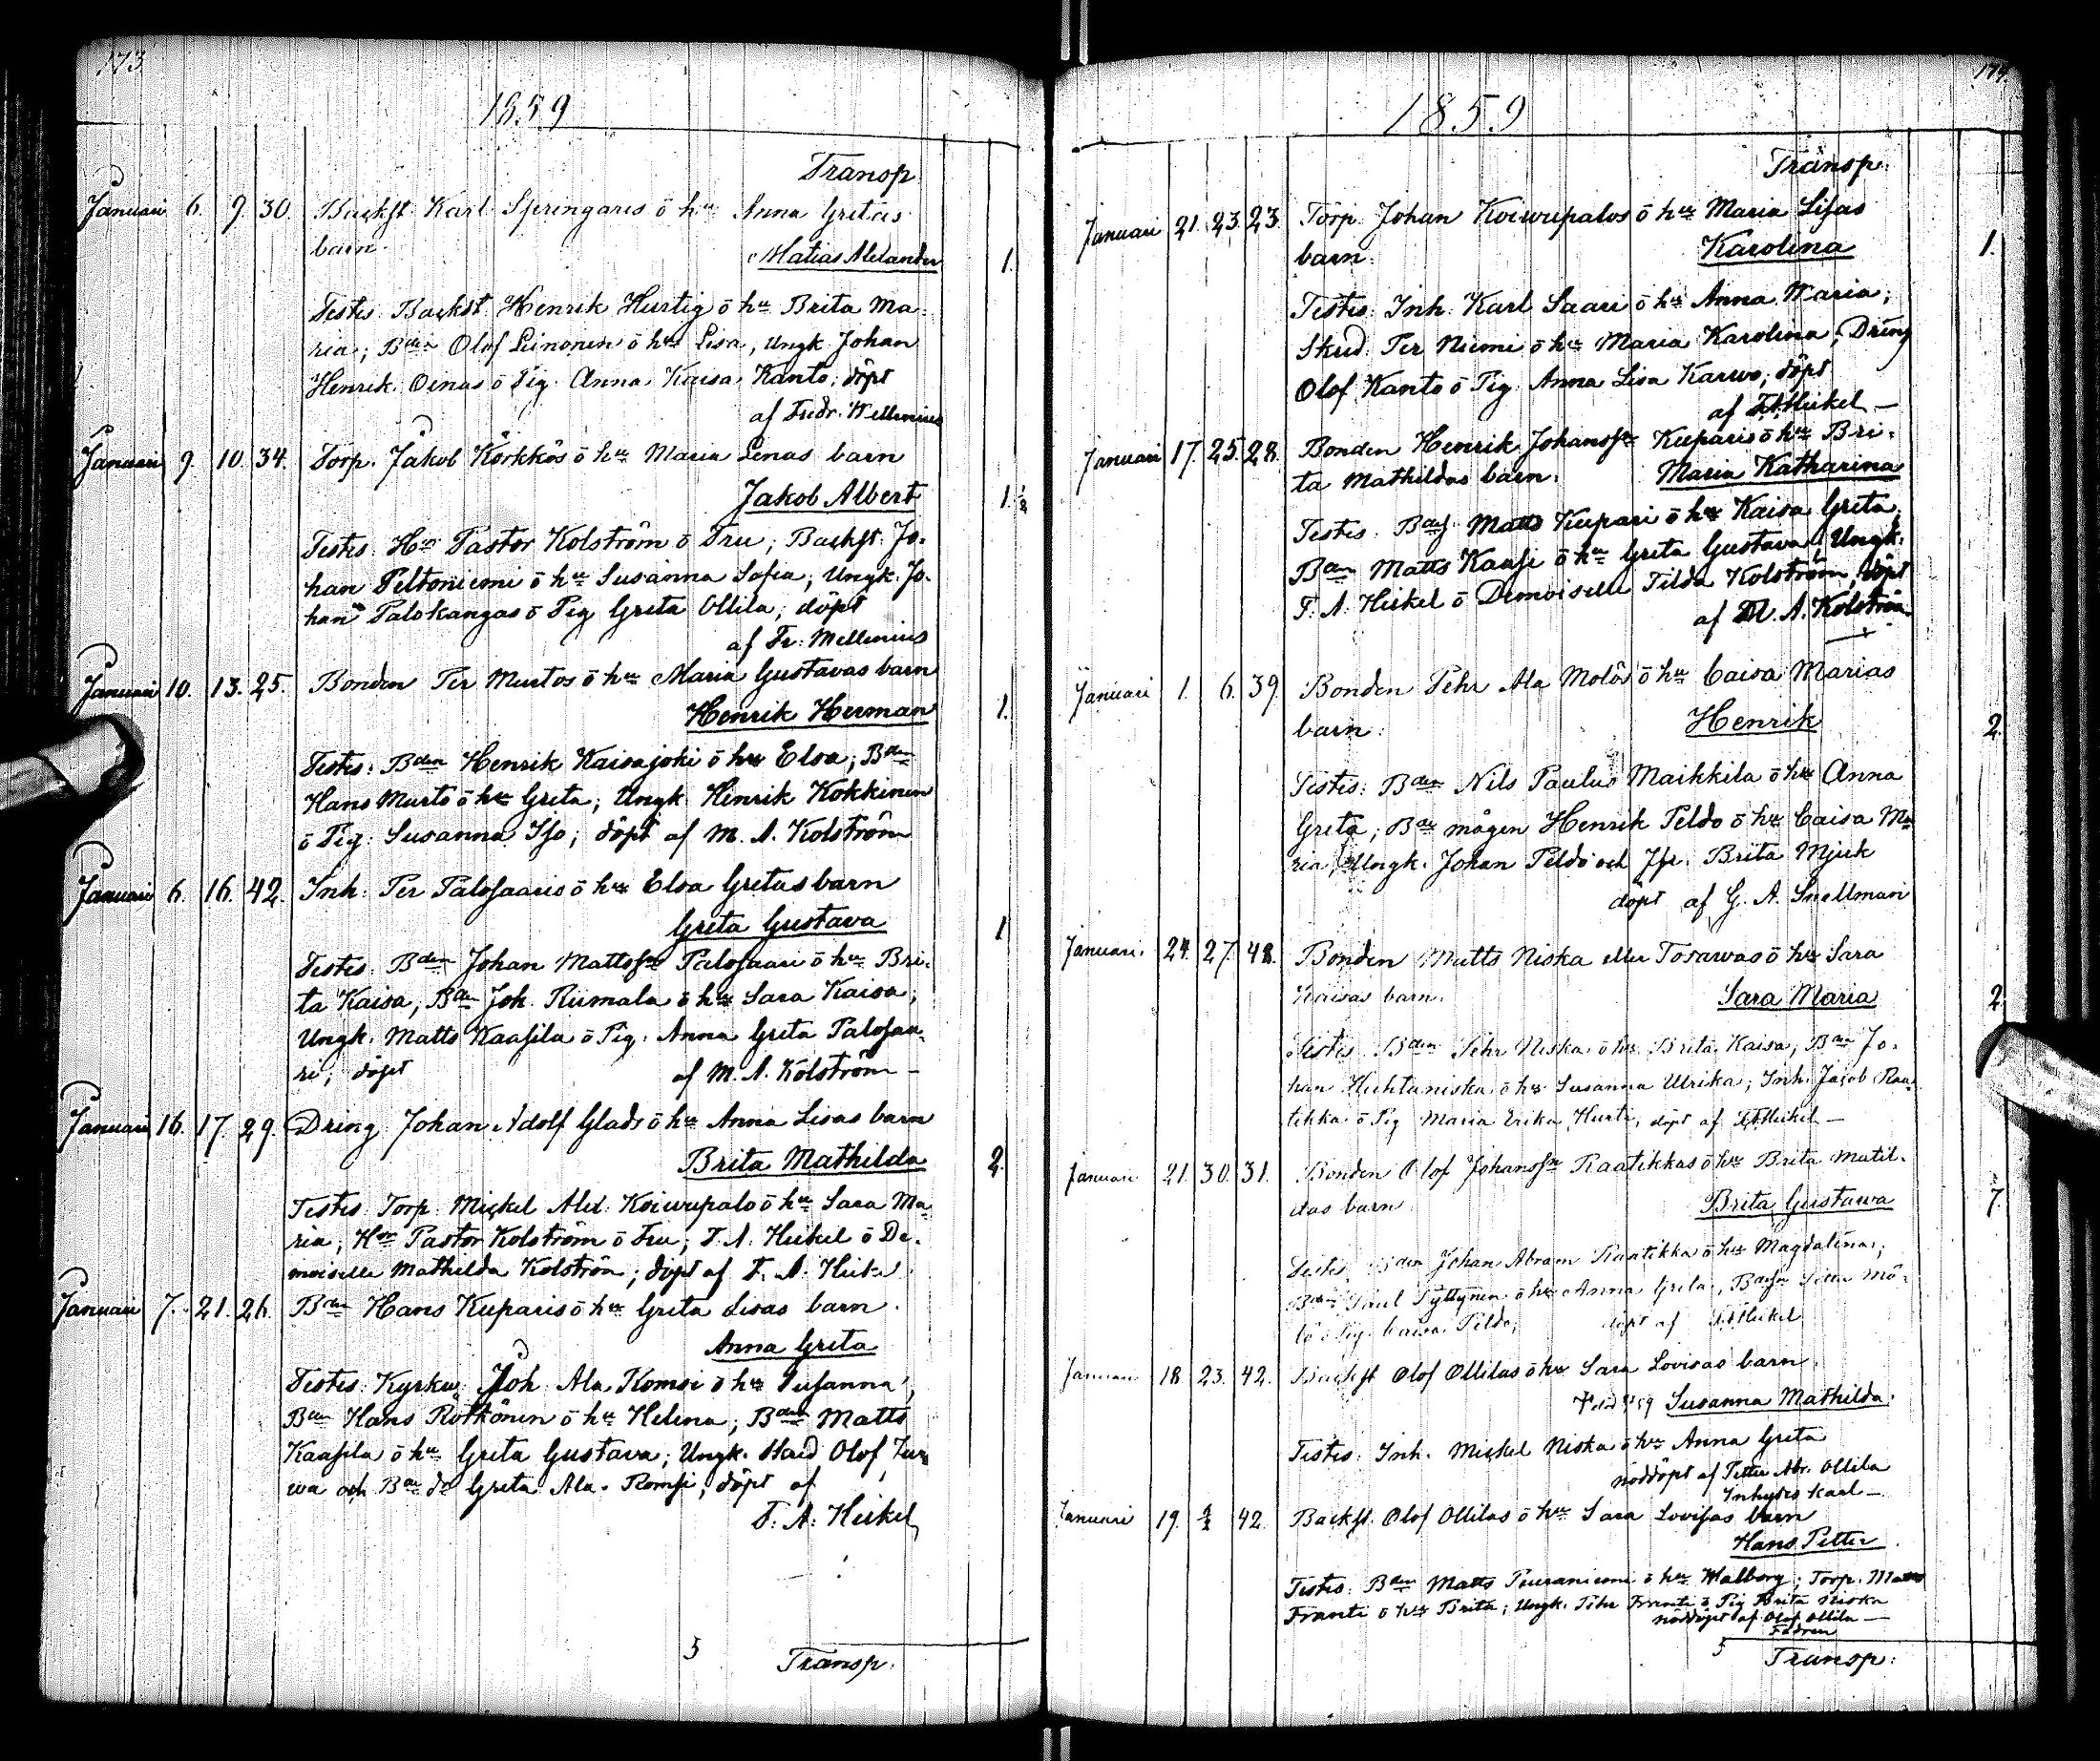 173
1859
Transp
Januari 6. 9. 30. Backst. Karl Springares ō hu Anna Gretas
barn. Matias Alexander 1.
Testes: Backst. Henrik Hurtig ō hu Brita Ma=
ria; Bden Olof Leinonen ō hu Lisa, Ungk. Johan
Henrik Oinas ō Pig. Anna Kaisa Kanto; döpt
af Fredr. Mellenius
Januari 9. 10. 34. Torp. Jakob Körkkös ō hu Maria Lenas barn
Jakob Albert 1. 1/2
Testes: Hrr Pastor Kolström ō Fru; Backst. Jo=
han Peltoniemi ō hu Susanna Sofia; Ungk. Jo=
han Palokangas ō Pig. Greta Ollila; döpt
af Fr. Mellenius
Januari 10. 13. 25. Bonden Per Murtos ō hu Maria Gustavas barn
Henrik Herman 1.
Testes: Bden Henrik Kaisajoki ō hu Elsa; Bden
Hans Murto ō hu Greta; Ungk. Henrik Kokkinen
ō Pig. Susanna Iso; döpt af M. A. Kolström
Januari 6. 16. 42. Inh. Per Palosaaris ō hu Elsa Gretas barn
Greta Gustava 1
Testes: Bden Johan Mattsson Palosaari ō hu Bri=
ta Kaisa; Bden Joh. Riimala ō hu Sara Kaisa;
Ungk. Matts Kaasila ō Pig. Anna Greta Palosaa=
ri; döpt af M. A. Kolström —
Januari 16. 17. 29. Dräng Johan Adolf Glads ō hu Anna Lisas barn
Brita Mathilda 2.
Testes: Torp. Mickel Alex. Koiwupalo ō hu Sara Ma=
ria; Hrr Pastor Kolström ō Fru; F. A. Heikel ō De=
moiselle Mathilda Kolström; döpt af F. A. Heikel
Januari 7. 21. 26. Bden Hans Kuparis ō hu Greta Lisas barn.
Anna Greta
Testes: Kyrkw. Joh. Ala Komsi ō hu Susanna;
Bden Hans Rottonen ō hu Helena; Bden Matts
Kaasila ō hu Greta Gustava; Ungk. Olof
och Greta Ala Romsi; döpt af
F. A. Heikel
5 Transp.
174.
1859
Transp.
Januari 21. 23. 23. Torp. Johan Koiwupalos ō hu Maria Lisas
barn: Karolina 1.
Testes: Inh. Karl Saari ō hu Anna Maria;
Skrd. Per Niemi ō hu Maria Karolina; Dräng
Olof Kanto ō Pig. Anna Lisa Karwo; döpt
af F. A. Heikel —
Januari 17. 25. 28. Bonden Henrik Johansson Kuparis ō hu Bri=
ta Mathildas barn. Maria Katharina
Testes: Matts Kupari ō hu Kaisa Greta;
Bden Matts Kaasi ō hu Greta Gustava; Ungk.
F. A. Heikel ō Demoiselle Tilda Kolström, döpt
af M. A. Kolström
Januari 1. 6. 39. Bonden Pehr Ala Molős ō hu Caisa Marias
barn: Henrik 2
Testes: Bden Nils Paulus Maikkila ō hu Anna
Greta; Bde mågen Henrik Peldo ō hu Caisa Ma
ria; Ungk. Johan Peldo och Jfr. Brita Mjuk
döpt af G. A. Snellman
Januari. 24. 27. 48. Bonden Matts Niska eller Torawas ō hu Sara
Kaisas barn. Sara Maria 2
Testes: Bden Pehr Niska ō hu Brita Kaisa; Bden Jo=
han Huhtaniska ō hu Susanna Ulrika; Inh. Jacob Raa=
tikka ō Pig. Maria Erika Hurti; döpt af F. A. Heikel —
Januari 21. 30. 31. Bonden Olof Johansson Raatikkas ō hu Brita Matil=
das barn Brita Gustawa 7.
Testes: Bden Johan Abram Raatikka ō hu Magdalena;
Bden Paul Pyttynen ō hu Anna Greta; Petter Mö=
lö ō Pig. Caisa Peldo; döpt af F. A. Heikel
Januari 18 23. 42. Backst Olof Ollilas ō hu Sara Lovisas barn.
Susanna Mathilda.
Testes: Inh. Mickel Niska ō hu Anna Greta
nöddöpt af Petter Abr. Ollila
Inhyses karl —
Januari 19. 2/2 42. Backst. Olof Ollilas ō hu Sara Lovisas barn
Hans Petter
Testes: Bden Matts Peuraniemi ō hu Walborg; Torp. Matts
Frantti ō hu Brita; Ungk. Pehr Frantti ō Pig Brita Niska
nöddöpt af Olof Ollila —
Fadren
5 Transp.